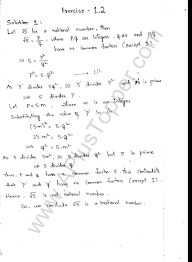 Exercise - 1.2
Solution 1:
Let √5 be a rational number, then
√5 = p/q, where p,q are integers, q≠0 and p,q
have no common factors (except 1)
⇒ 5 = p²/q²
p² = 5q² → (1)
As 5 divides 5q², so 5 divides p² and 5 is prime
⇒ 5 divides p.
Let p = 5m, where m is an integer
Substituting the value of 'p' in
(5m)² = 5.q²
25.m² = 5.q²
5.m² = q²
As 5 divides 5m², so 5 divides q² but 5 is prime
⇒ 5 divides q
Thus p and q have common factor 5. this contradicts
that 'p' and 'q' have no common factors (except 1).
Hence, √5 is not a rational number.
So, we conclude √5 is a irrational number.